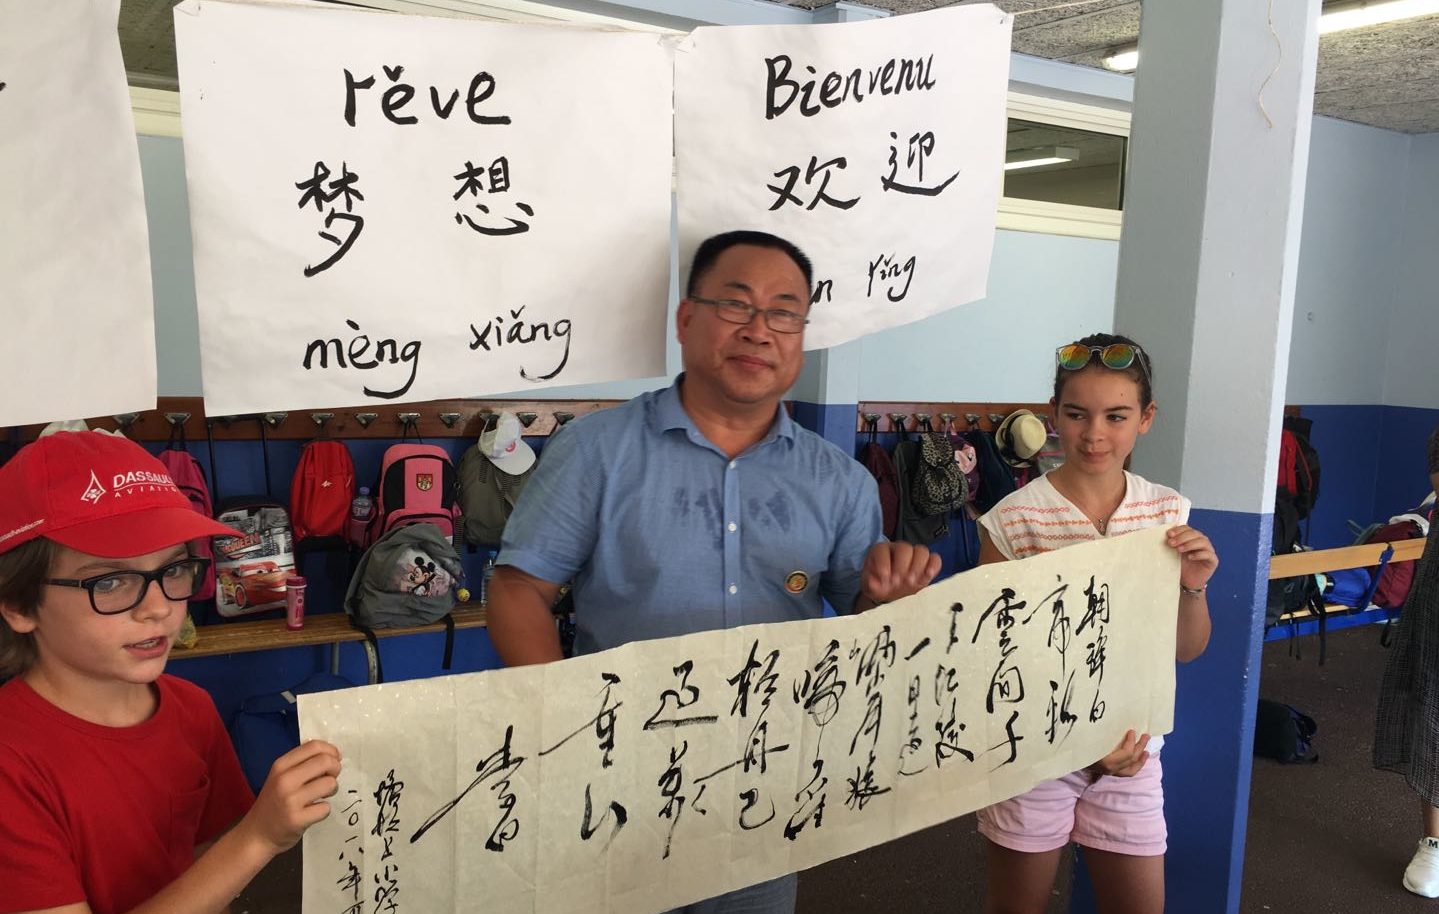 rěve
梦 想
mèng xiǎng
Bienvenu
欢 迎
yǐng
DASSAULT
AVIATION
朝辞白
帝彩
雲间千
里江陵
一日还
啼不住
轻舟已
过萬
重山
小学
二〇一八年